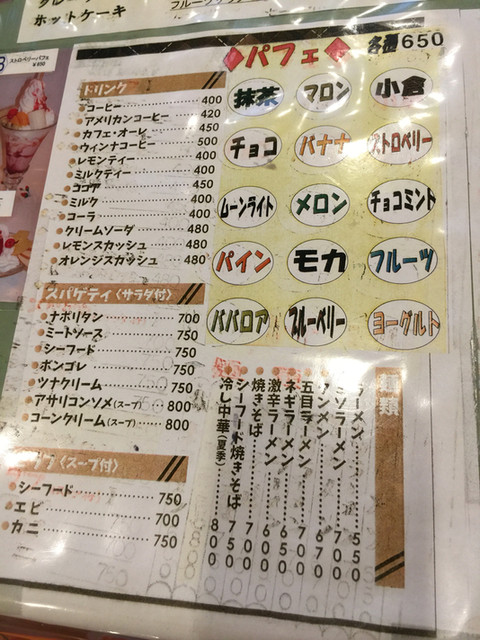 ホットケーキ
ストロベリーパフェ
¥650
パフェ 各種650
抹茶 マロン 小倉
チョコ バナナ ストロベリー
ムーンライト メロン チョコミント
パイン モカ フルーツ
ババロア ブルーベリー ヨーグルト
ドリンク
コーヒー 400
アメリカンコーヒー 420
カフェ・オーレ 450
ウィンナコーヒー 500
レモンティー 400
ミルクティー 400
ココア 450
ミルク 400
コーラ 400
クリームソーダ 480
レモンスカッシュ 480
オレンジスカッシュ 480
スパゲティ〈サラダ付〉
ナポリタン 700
ミートソース 750
シーフード 750
ボンゴレ 750
ツナクリーム 750
アサリコンソメ(スープ) 800
コーンクリーム(スープ) 800
〈スープ付〉
シーフード 750
エビ 700
カニ 750
麺類
ラーメン 550
ミソラーメン
タンメン
五目ラーメン 700
ネギラーメン
激辛ラーメン
焼きそば
シーフード焼きそば 750
冷し中華(夏季) 800